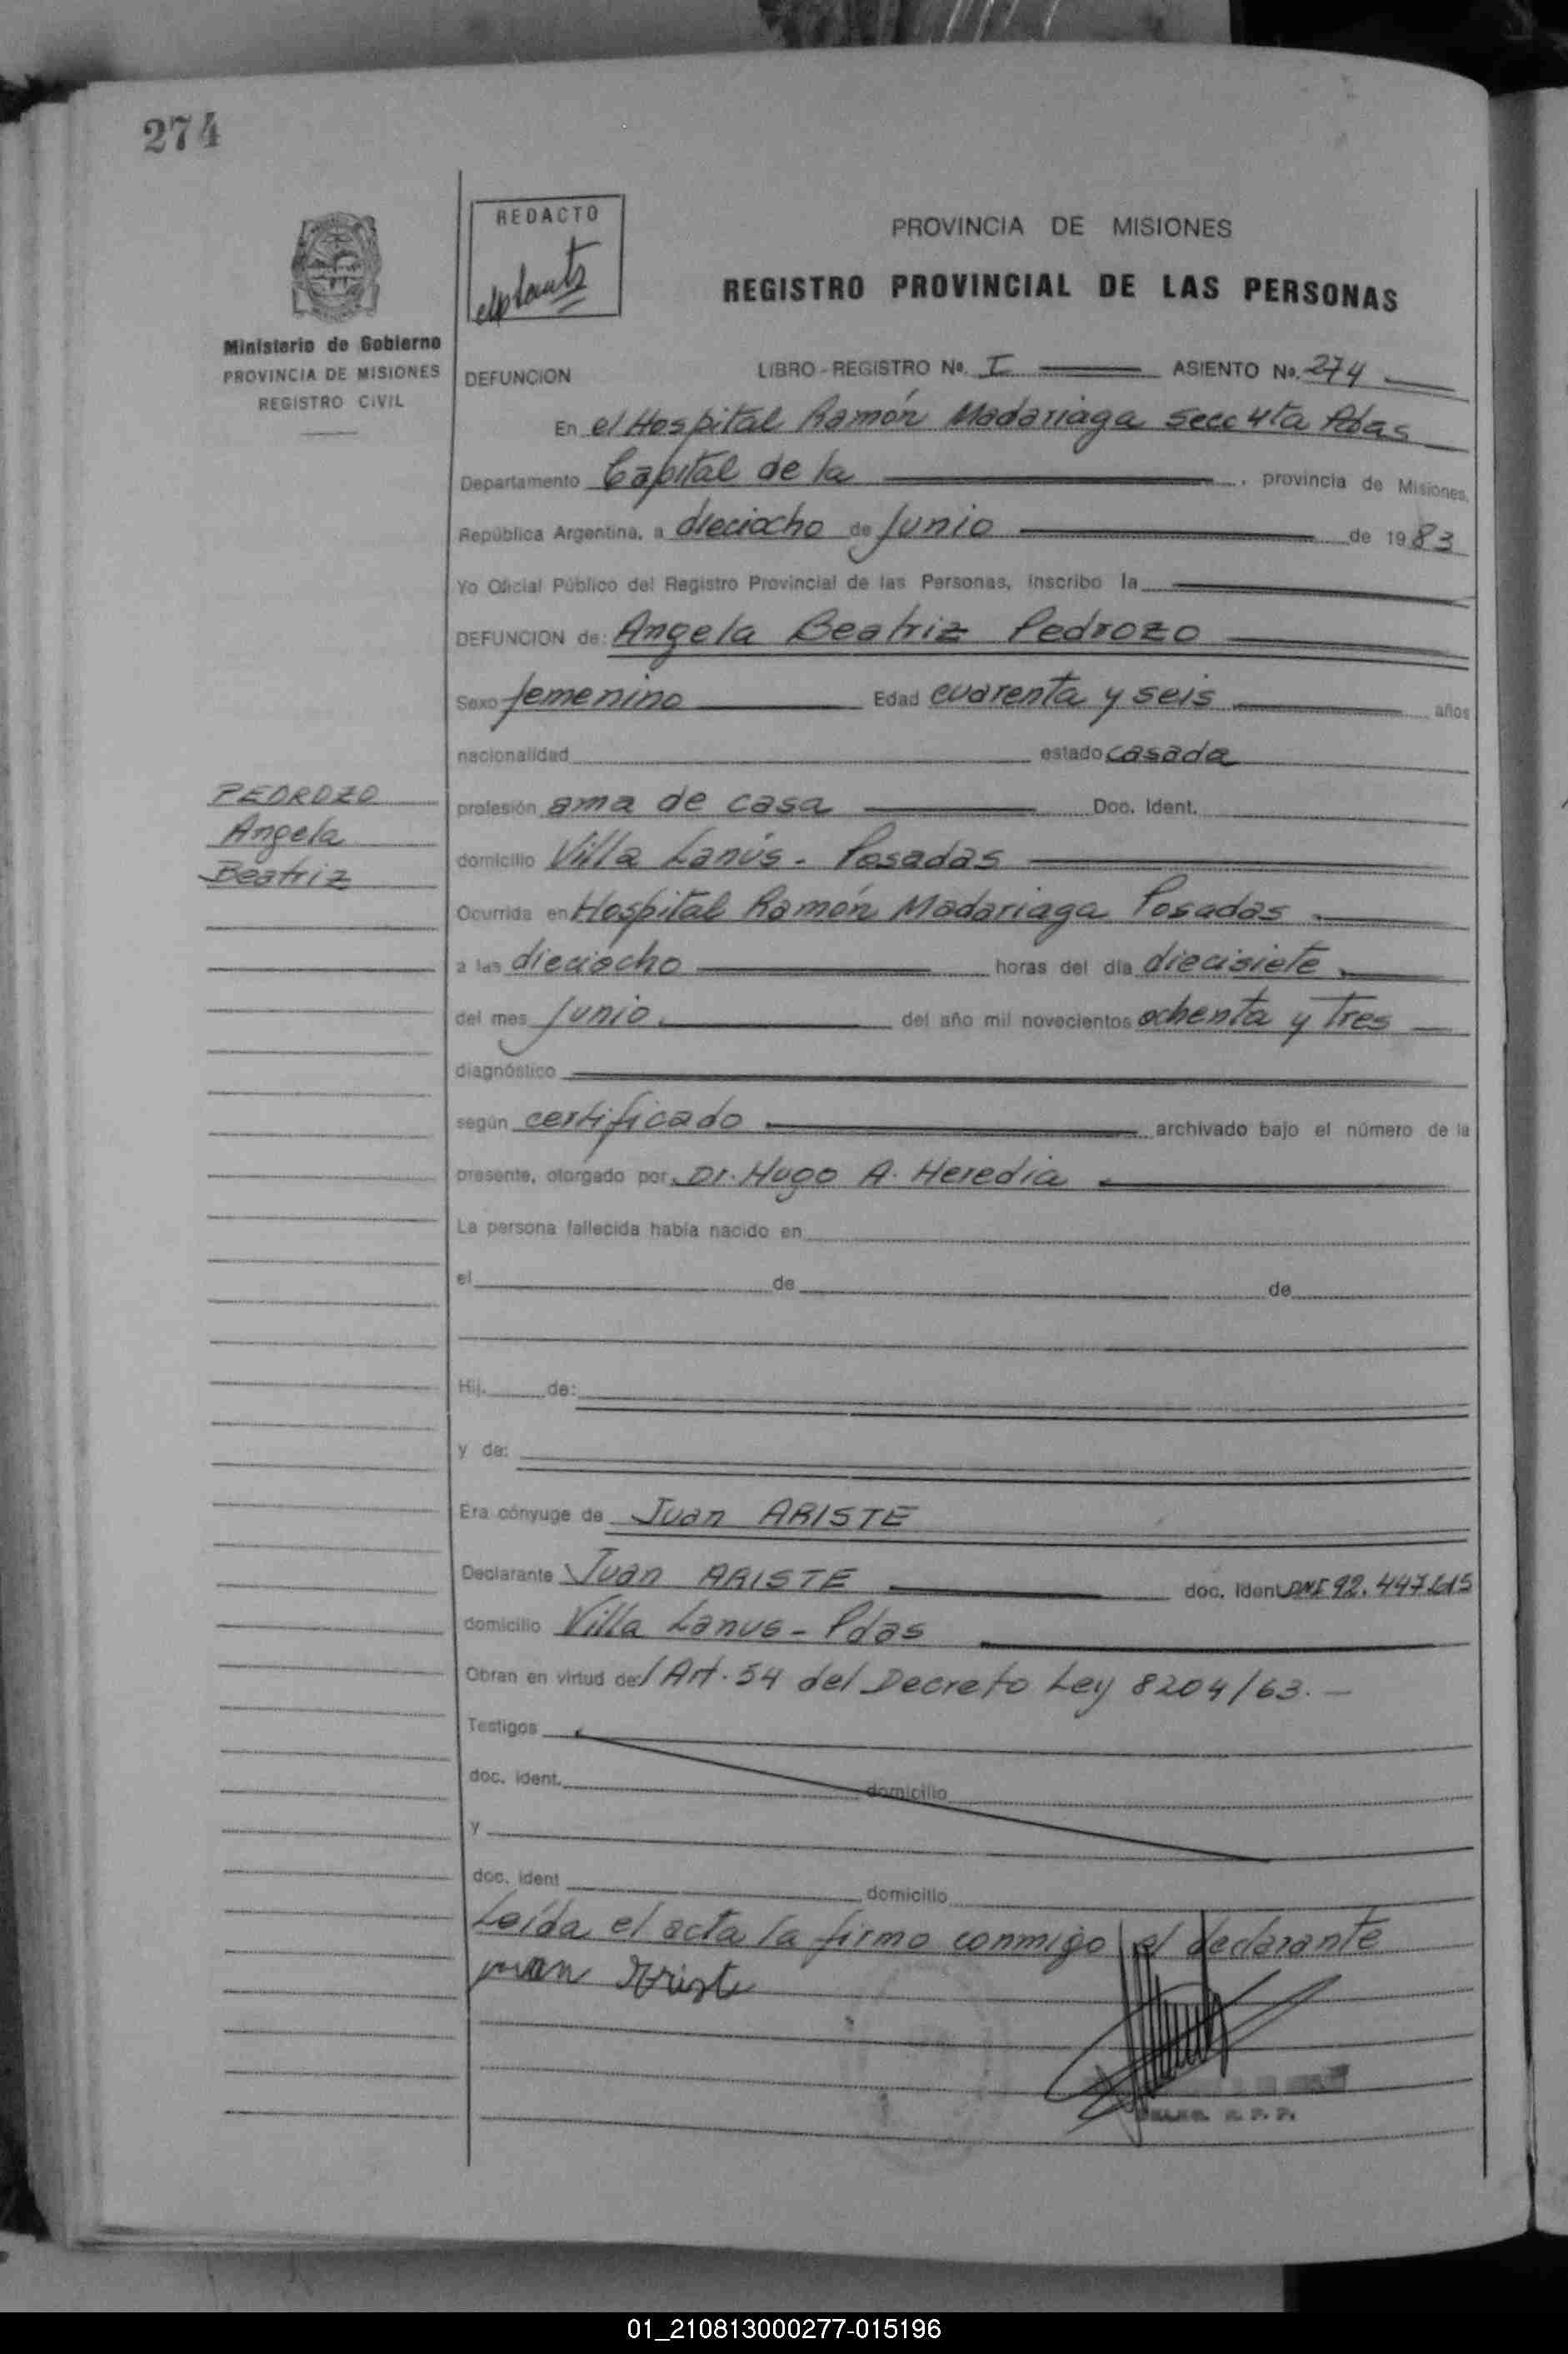 274
REDACTO
PROVINCIA DE MISIONES
REGISTRO PROVINCIAL DE LAS PERSONAS
Ministerio de Gobierno
PROVINCIA DE MISIONES
REGISTRO CIVIL
DEFUNCION LIBRO-REGISTRO No. I ASIENTO No. 274
En el Hospital Ramón Madariaga Secc 4ta Pdas
Departamento Capital de la , provincia de Misiones,
República Argentina, a dieciocho de Junio de 1983
Yo Oficial Público del Registro Provincial de las Personas, inscribo la
DEFUNCION de: Angela Beatriz Pedrozo
Sexo femenino Edad cuarenta y seis años
nacionalidad estado casada
PEDROZO
Angela
Beatriz
profesión ama de casa Doc. Ident.
domicilio Villa Lanús - Posadas
Ocurrida en Hospital Ramón Madariaga Posadas
a las dieciocho horas del día diecisiete
del mes Junio. del año mil novecientos ochenta y Tres
diagnóstico
según certificado archivado bajo el número de la
presente, otorgado por Dr. Hugo A. Heredia
La persona fallecida había nacido en
el de de
Hij. de:
y de:
Era cónyuge de Juan ARISTE
Declarante Juan ARISTE doc. Ident DNI 92.447.615
domicilio Villa Lanus - Pdas
Obran en virtud de: / Art. 54 del Decreto Ley 8204/63. -
Testigos
doc. ident. domicilio
y
doc. ident domicilio
Leída el acta la firmo conmigo el declarante
juan Ariste
01_210813000277-015196